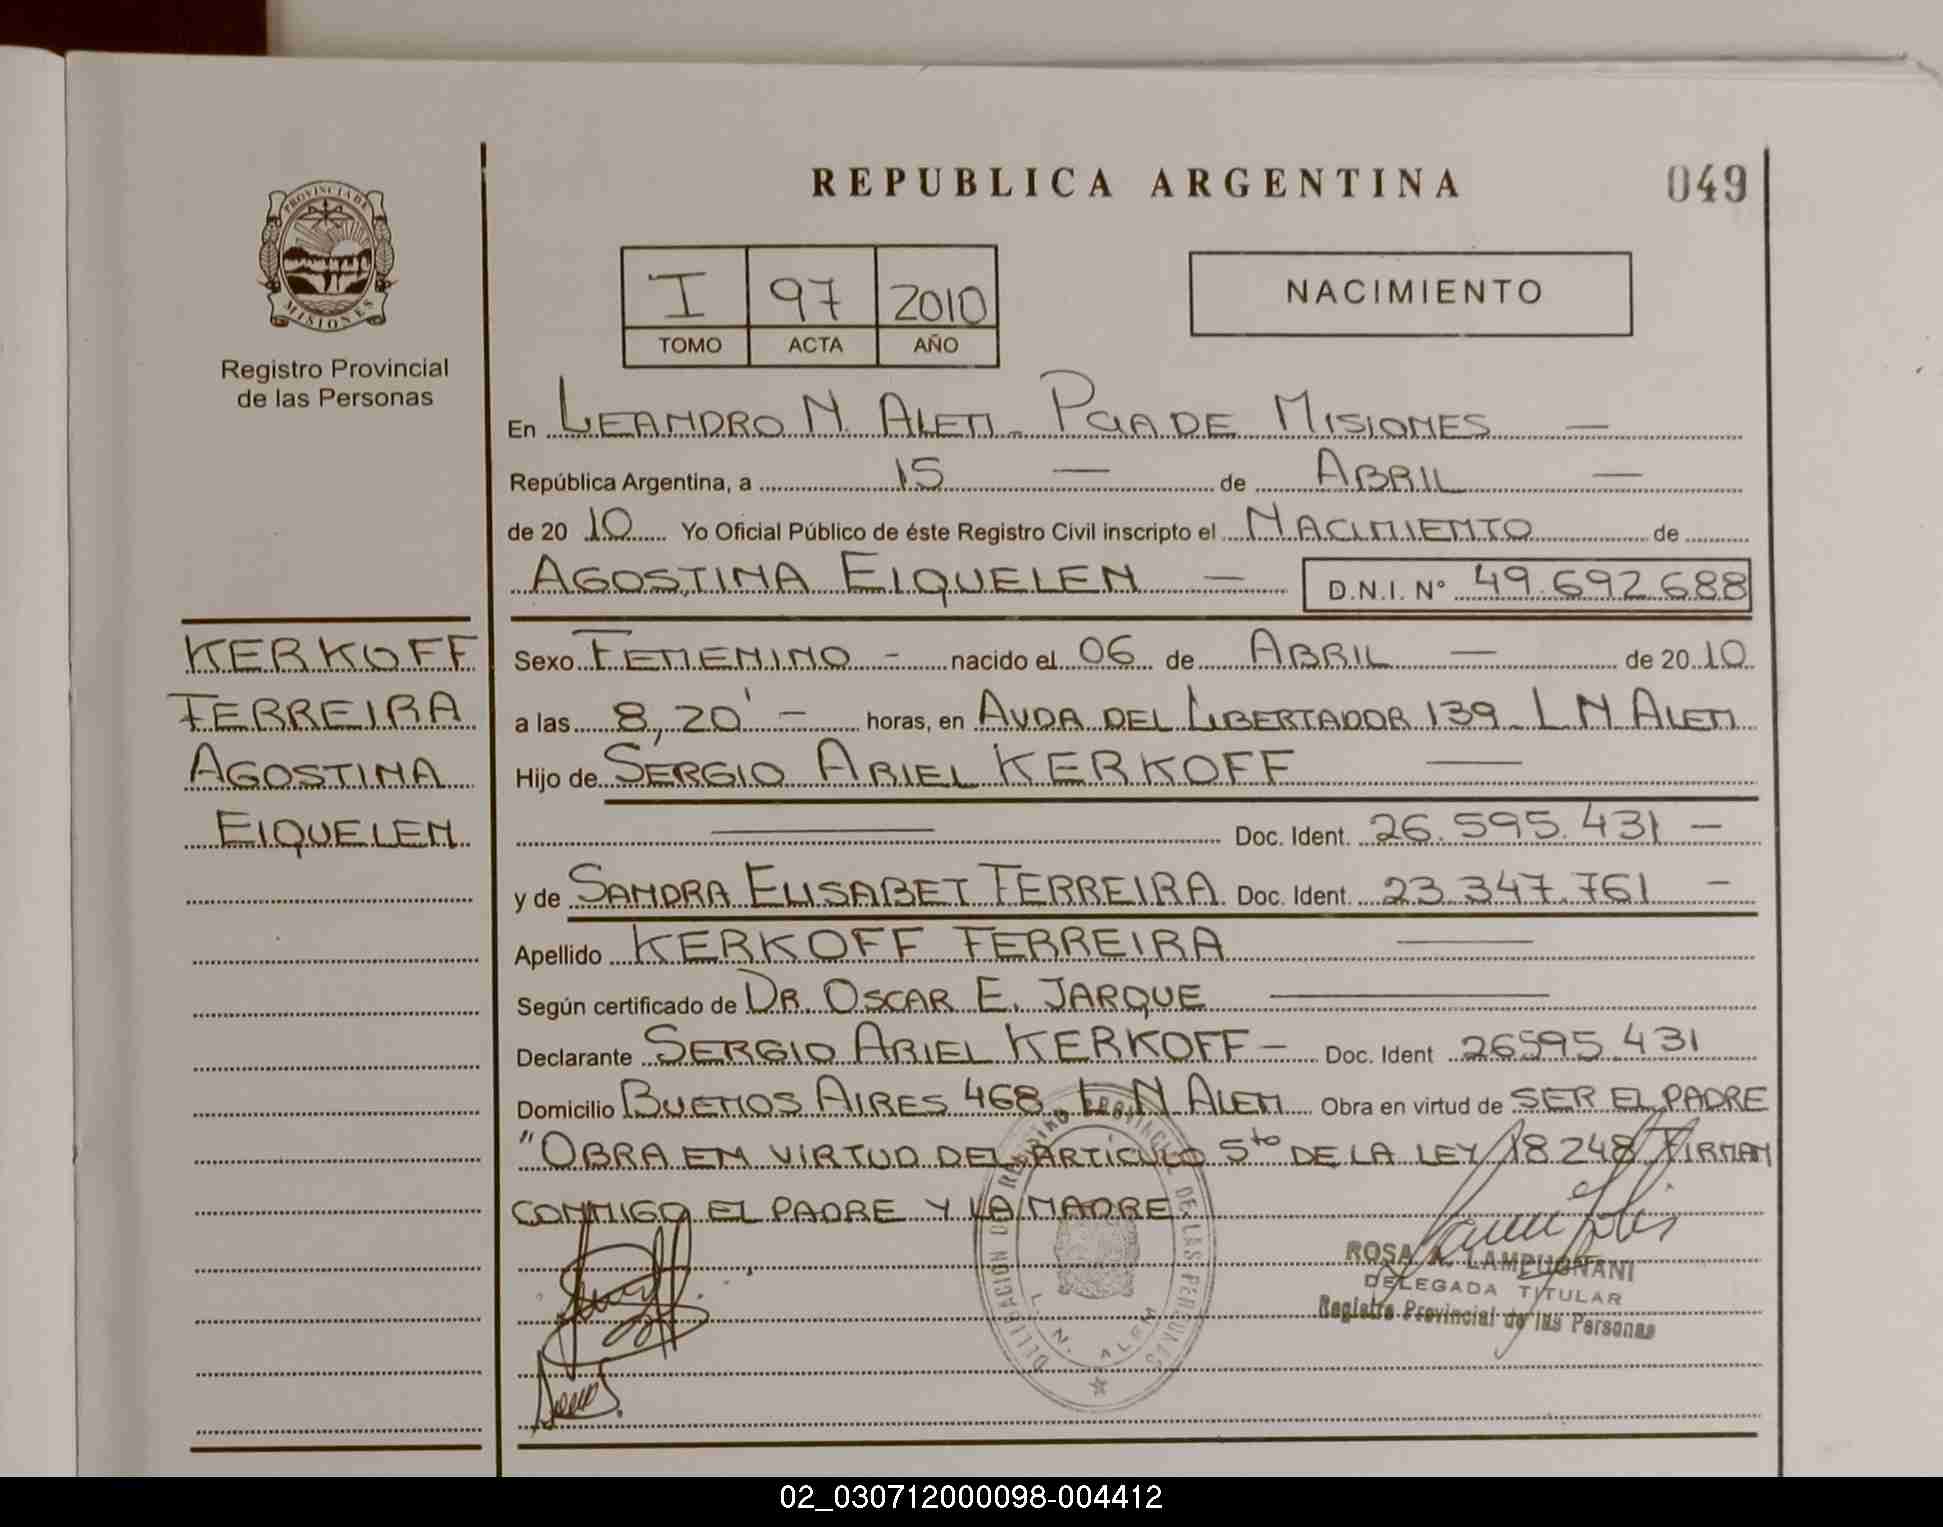 REPUBLICA ARGENTINA
049
PROVINCIA DE MISIONES
Registro Provincial
de las Personas
I 97 2010
TOMO ACTA AÑO
NACIMIENTO
En LEANDRO N. ALEM - PCIA DE MISIONES —
República Argentina, a 15 — de ABRIL —
de 2010 Yo Oficial Público de éste Registro Civil inscripto el NACIMIENTO de
AGOSTINA EIQUELEN — D.N.I. N° 49.692.688
KERKOFF
FERREIRA
AGOSTINA
EIQUELEN
Sexo FEMENINO - nacido el 06 de ABRIL — de 2010
a las 8,20' - horas, en AVDA DEL LIBERTADOR 139 - L N ALEM
Hijo de SERGIO ARIEL KERKOFF —
— Doc. Ident. 26.595.431 —
y de SANDRA ELISABET FERREIRA Doc. Ident. 23.347.761 -
Apellido KERKOFF FERREIRA —
Según certificado de DR. OSCAR E. JARQUE —
Declarante SERGIO ARIEL KERKOFF - Doc. Ident 26595.431
Domicilio BUENOS AIRES 468, L N ALEM Obra en virtud de SER EL PADRE
"OBRA EN VIRTUD DEL ARTÍCULO 5to DE LA LEY 18248 FIRMAN
CONMIGO EL PADRE Y LA MADRE.
DELEGACION DEL REGISTRO PROVINCIAL DE LAS PERSONAS
L. N. ALEM
ROSA A. LAMPUGNANI
DELEGADA TITULAR
Registro Provincial de las Personas
02_030712000098-004412